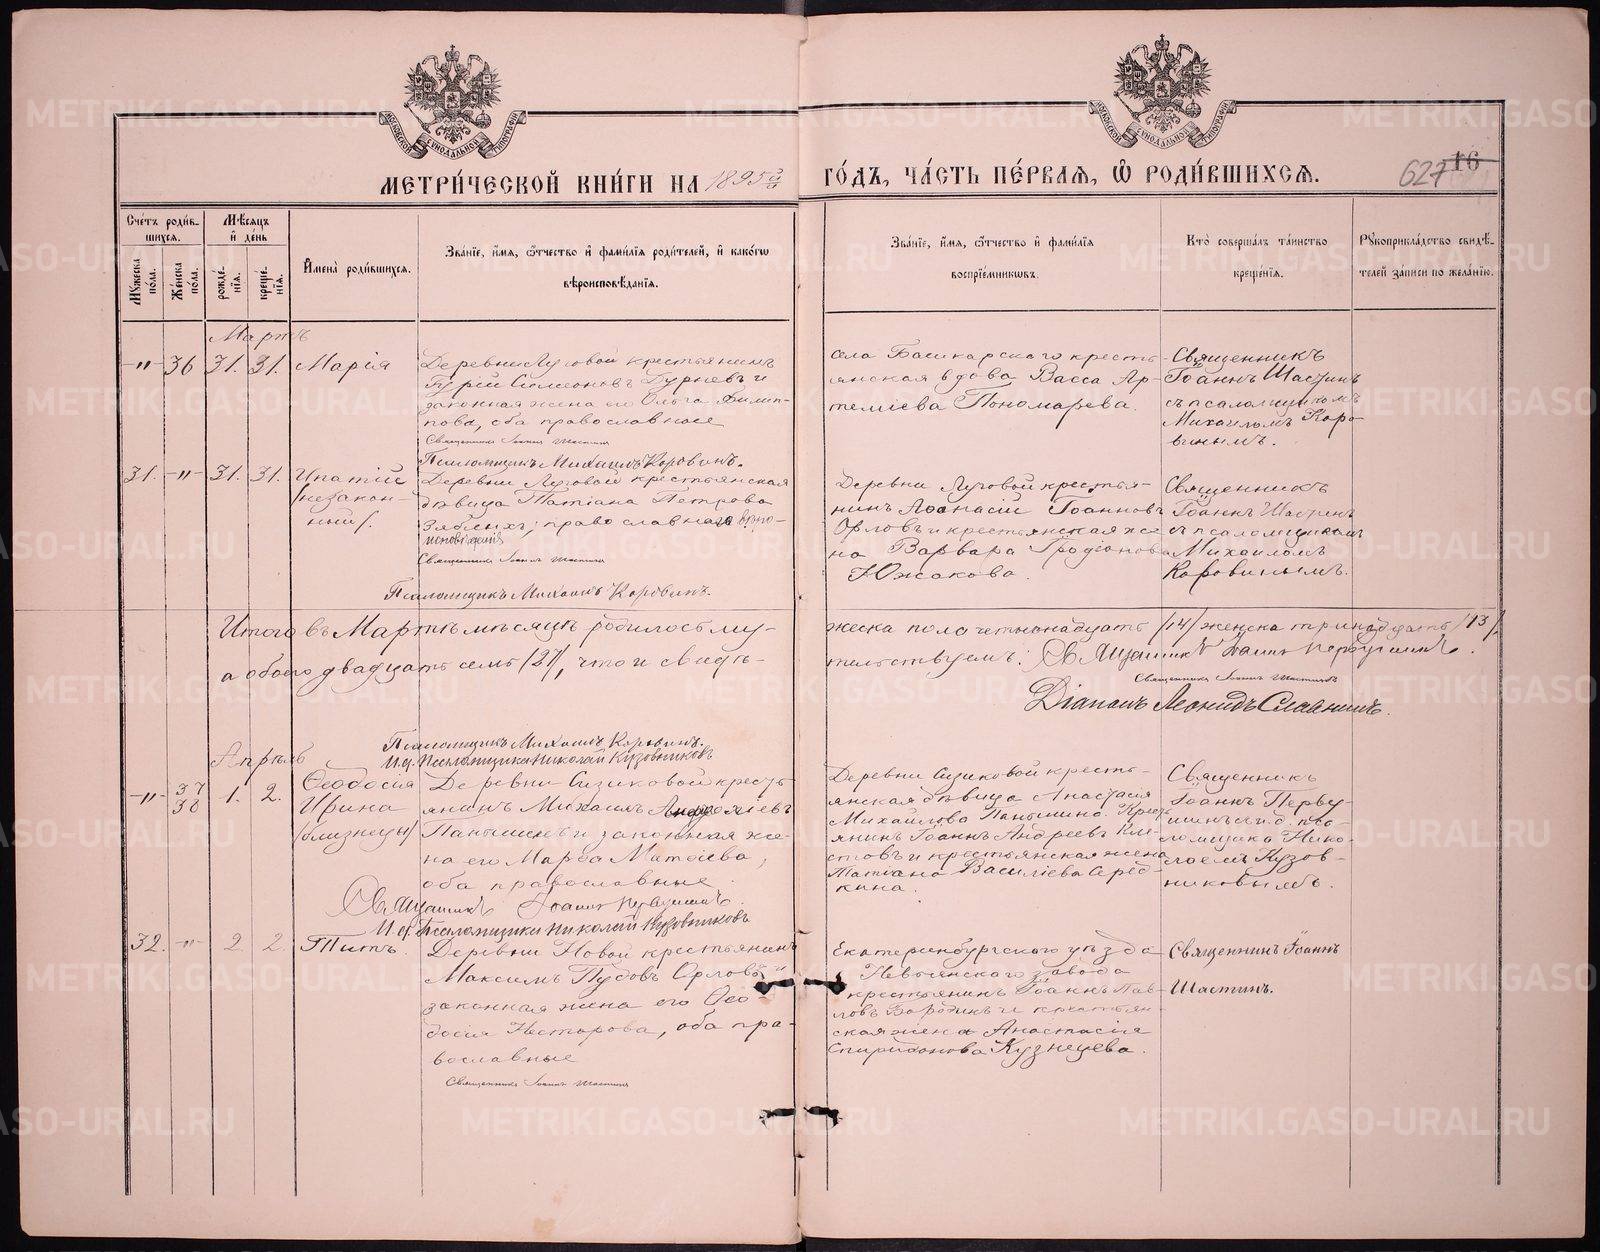 МОСКОВСКОЙ СѴНОДАЛЬНОЙ ТИПОГРАФИИ
МОСКОВСКОЙ СѴНОДАЛЬНОЙ ТИПОГРАФИИ
МЕТРИ́ЧЕСКОЙ КНИ́ГИ НА 1895й
ГО́ДЪ, ЧА́СТЬ ПЕ́РВАЯ, Ѽ РОДИ́ВШИХСЯ.
627 16
Сче́тъ роди́в-
шихся.
Му́жеска по́ла.
Же́нска по́ла.
Мѣ́сяцъ
и де́нь
рожде́-
нія.
креще́-
нія.
Имена̀ роди́вшихся.
Зва́ніе, и́мя, ѻ҆́тчество и фами́лія роди́телей, и како́гѡ
вѣроисповѣ́данія.
Зва́ніе, и́мя, ѻ҆́тчество и фами́лія
воспріе́мникѡвъ.
Кто̀ соверша́лъ та́инство
креще́нія.
Рукоприкла́дство свидѣ́-
телей за́писи по жела́нію.
Мартъ
-"- 36 31. 31. Марія
Деревни Луговой крестьянинъ
Гурій Симеоновъ Гурьевъ и
законная жена его Ольга Филип-
пова, оба православные
Священникъ Іоаннъ Шастинъ
Псаломщикъ Михаилъ Коровинъ.
села Башкарскаго кресть-
янская вдова Васса Ар-
теміева Пономарева.
Священникъ
Іоаннъ Шастинъ
съ псаломщикомъ
Михаиломъ Коро-
винымъ.
31. -"- 31. 31. Ипатій
/незакон-
ный/.
Деревни Луговой крестьянская
дѣвица Татіана Петрова
Зяблихъ; православнаго вѣро-
исповѣданія
Священникъ Іоаннъ Шастинъ
Псаломщикъ Михаилъ Коровинъ.
Деревни Луговой крестья-
нинъ Аѳанасій Іоанновъ
Орловъ и крестьянская же-
на Варвара Иродіонова
Южакова.
Священникъ
Іоаннъ Шастинъ
съ псаломщикомъ
Михаиломъ
Коровинымъ.
Итого въ Мартѣ мѣсяцѣ родилось му-
жеска пола четырнадцать /14/ женска тринадцать /13/,
а обоего двадцать семь /27/, что и свидѣ-
тельствуемъ: Священникъ Іоаннъ Первушинъ.
Священникъ Іоаннъ Шастинъ
Діаконъ Леонидъ Славнинъ.
Псаломщикъ Михаилъ Коровинъ.
И.д. Псаломщика Николай Кузовниковъ
Апрѣль
-"- 37 38 1. 2.
Ѳеодосія
Ирина
/близнецы/
Деревни Сизиковой кресть-
янинъ Михаилъ
Паньшинъ и законная же-
на его Марѳа Матѳіева,
оба православные.
Священникъ Іоаннъ Первушинъ.
И.д. Псаломщика Николай Кузовниковъ
Деревни Сизиковой кресть-
янская дѣвица Анастасія
Михайлова Паньшина. Кресть-
янинъ Іоаннъ Андреевъ Кли-
стовъ и крестьянская жена
Татіана Василіева Серед-
кина.
Священникъ
Іоаннъ Перву-
шинъ и.д. пса-
ломщика Нико-
лаемъ Кузов-
никовымъ.
32. -"- 2 2. Титъ.
Деревни Новой крестьянинъ
Максимъ Пудовъ Орловъ и
законная жена его Ѳео-
досія Нестерова, оба пра-
вославные
Священникъ Іоаннъ Шастинъ
Екатеринбургскаго уѣзда
Невьянскаго завода
крестьянинъ Іоаннъ Пав-
ловъ Бородинъ и крестьян-
ская жена Анастасія
Спиридонова Кузнецова.
Священникъ Іоаннъ
Шастинъ.
METRIKI.GASO-URAL.RU